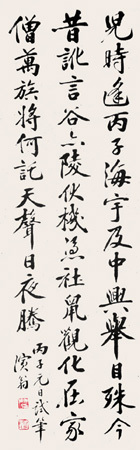 兒時逢丙子海宇及中興舉目殊今
昔訛言谷亦陵伏機憑社鼠觀化在家
僧萬族將何託天聲日夜騰
丙子元日試筆